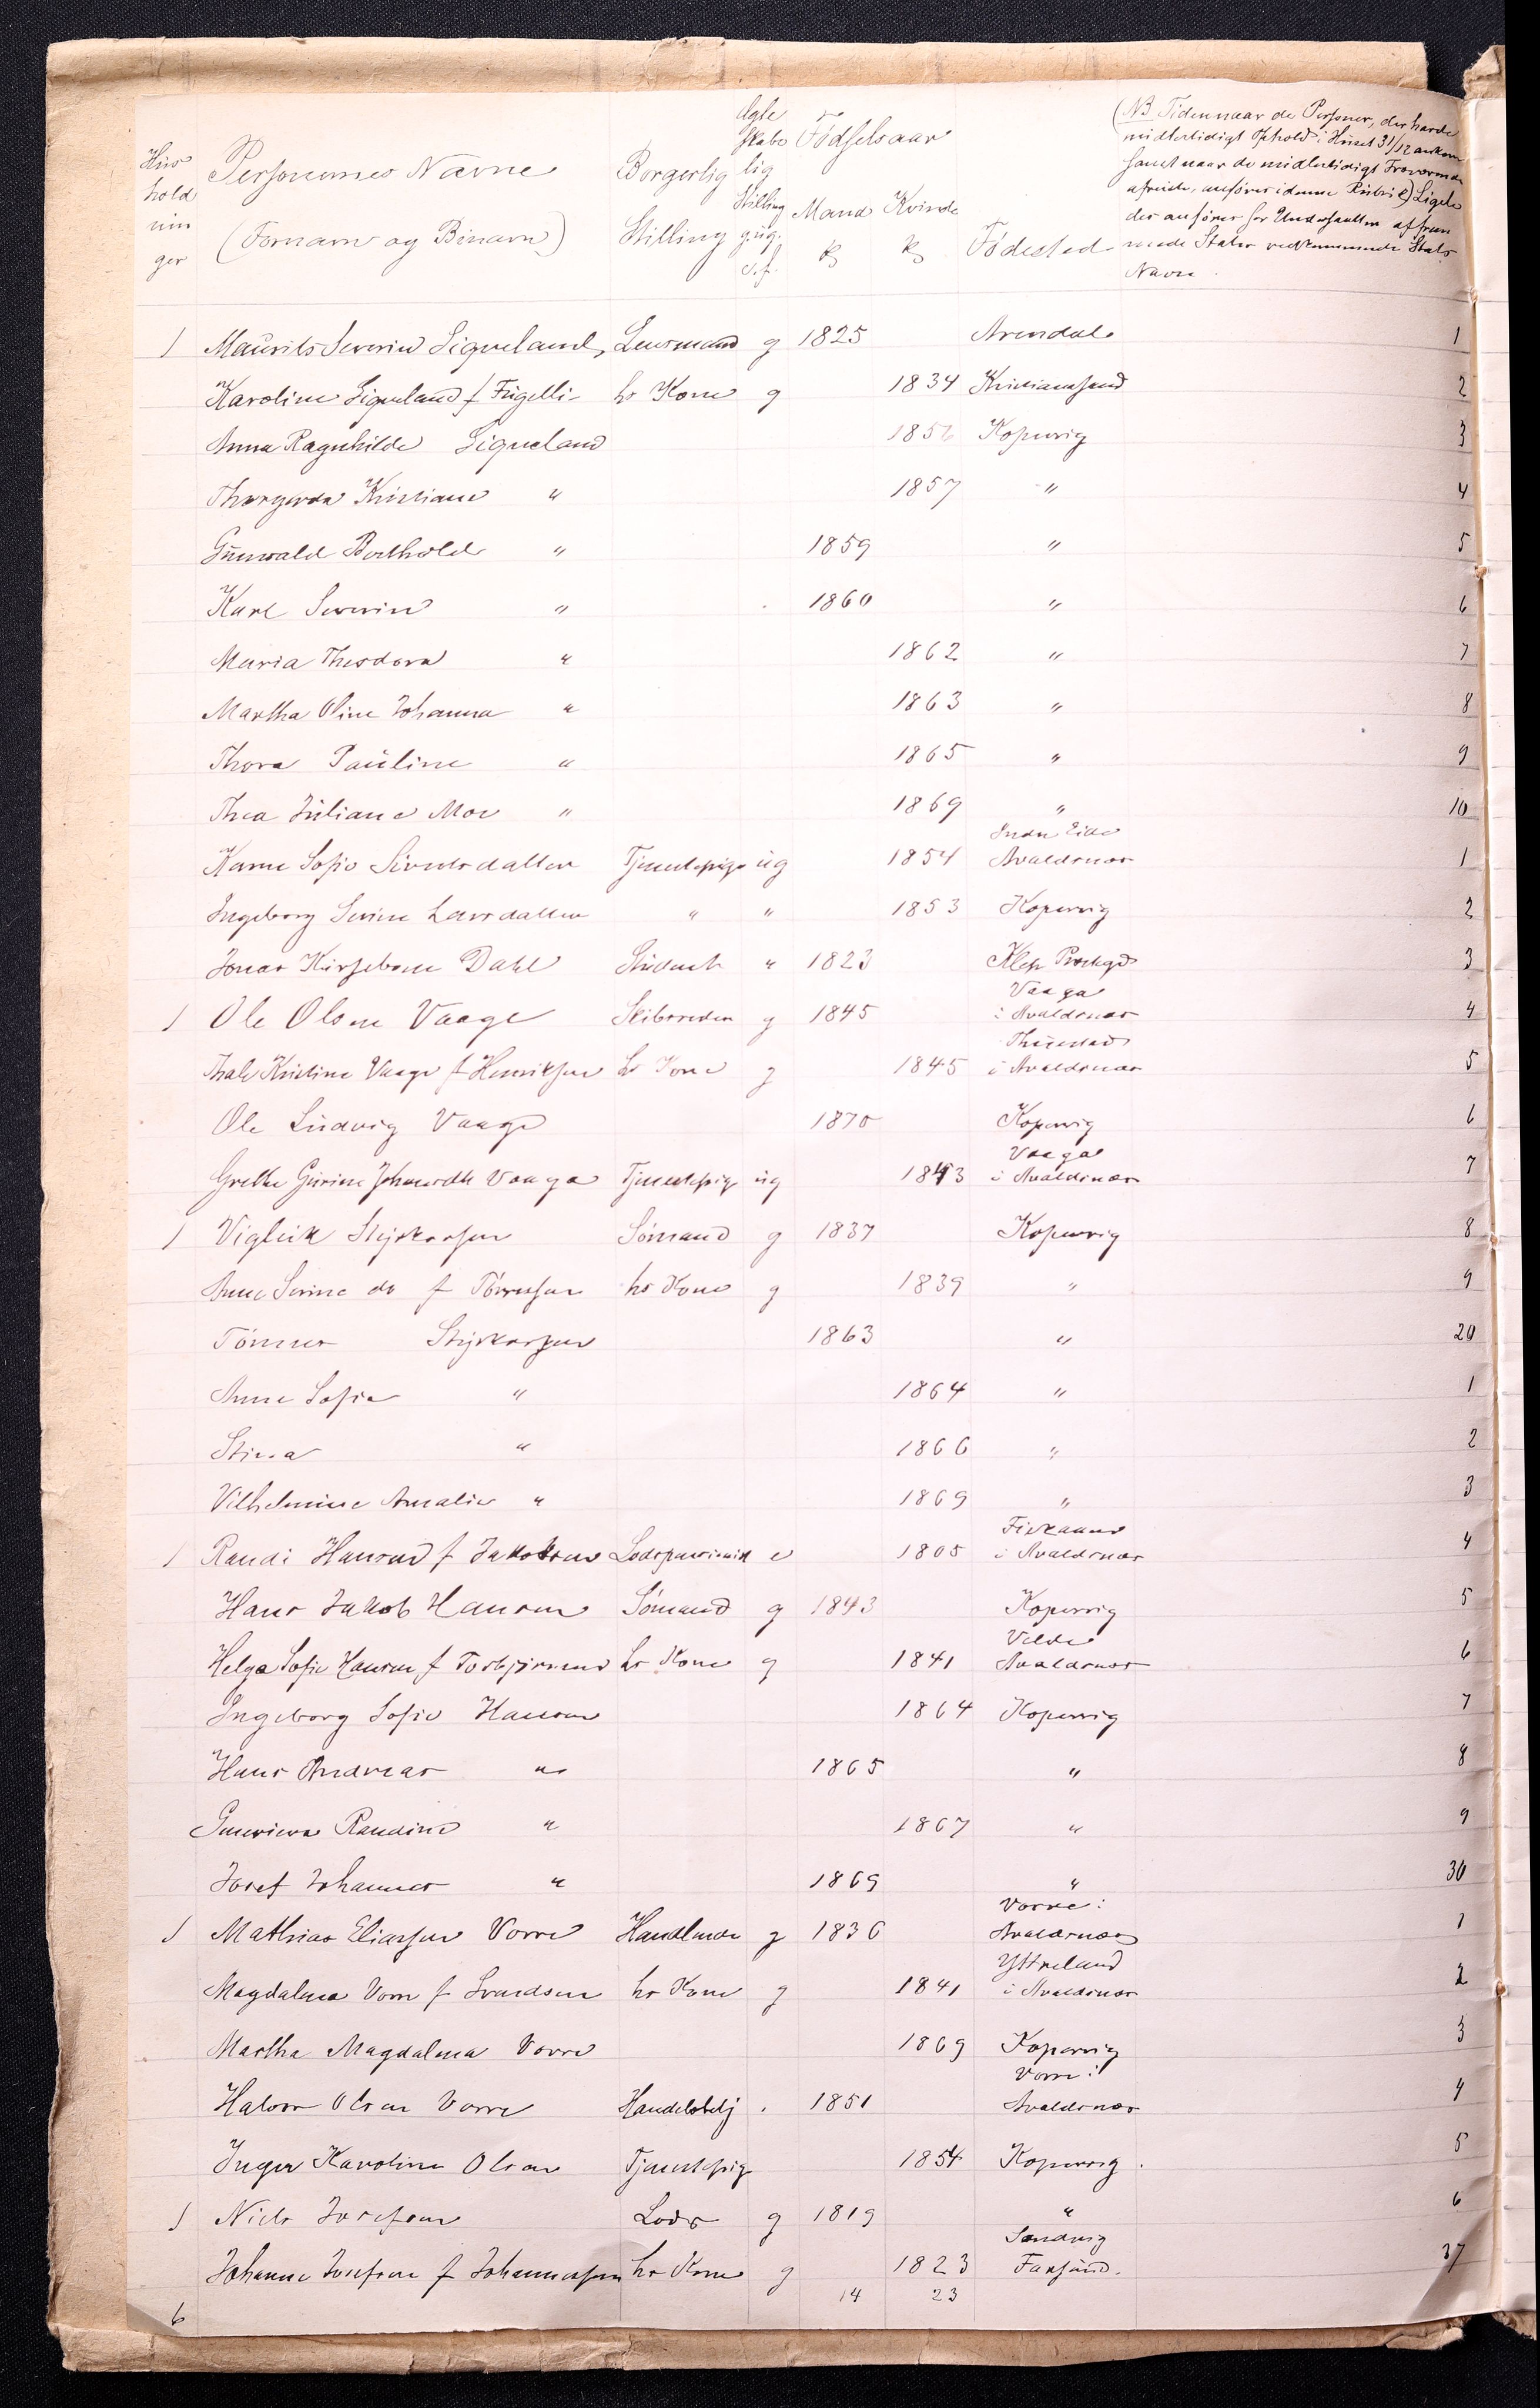 Hus
hold
nin
ger
Personernes Navne
(Fornavn og Binavn)
Borgerlig
Stilling
Ægte
skabe
lig
Stilling
g. ug.
e. f.
Fødselsaar
Mand Kvinde
Fødested
(NB Tiden naar de Personer, der havde
midlertidigt Ophold i Huset 31/12 ankom
samt naar de midlertidigt Fraværende
afreiste, anføres i denne Rubrik) Ligele
des anføres for Undersaatter af frem
mede Stater vedkommende Stats
Navn.
1 Maurits Severin Siqueland, Lensmand g 1825 Arendal 1
Karoline Siqueland f Fugelli hs Kone g 1834 Kristiansand 2
Anna Ragnhilde Siqueland 1856 Kopervig 3
Thorgerda Kristiane " 1857 " 4
Gunvald Berthold " 1859 " 5
Karl Severin " 1860 " 6
Maria Theodora " 1862 " 7
Martha Oline Johanna " 1863 " 8
Thora Pauline " 1865 " 9
Thea Juliane Moe " 1869 " 10
Eide
Karne Sofie Sivertsdatter Tjenestepige ug 1854 Avaldsnæs 1
Ingeborg Serine Larsdatter " " 1853 Kopervig 2
Jonas Kirsebom Dahl Student " 1823 Klep Prestegd 3
Vaaga
1 Ole Olsen Vaage Skibsreder g 1845 i Avaldsnæs 4
Thale Kristine Vaage f Henriksen hs Kone g 1845 i Avaldsnæs 5
Ole Ludvig Vaage 1870 Kopervig 6
Vaaga
Grethe Gurine Johnsdtr Vaaga Tjenestepige ug 1843 i Avaldsnæs 7
1 Vigleik Styrkorsen Sömand g 1837 Kopervig 8
Anne Serine do f Tönnesen hs Kone g 1839 " 9
Tönnes Styrkorsen 1863 " 20
Anne Sofie " 1864 " 1
Stina " 1866 " 2
Vilhelmine Amalie " 1869 " 3
Fiskaaen
1 Randi Hansen f Jakobsen e 1805 i Avaldsnæs 4
Hans Jakob Hansen Sömand g 1843 Kopervig 5
Velde
Helga Sofie Hansen f Torbjörnsen hs Kone g 1841 Avaldsnæs 6
Ingeborg Sofie Hansen 1864 Kopervig 7
Hans Andreas " 1865 " 8
Randine " 1867 " 9
Josef Johannes " 1869 " 30
Vorre i
1 Mathias Eliassen Vorre Handlende g 1836 Avaldsnæs 1
Ytreland
Magdalena Vorre f Svendsen hs Kone g 1841 i Avaldsnæs 2
Martha Magdalena Vorre 1869 Kopervig 3
Vorre i
Halvor Olsen Vorre Handelsbetj. 1851 Avaldsnæs 4
Inger Karoline Olsen Tjenestepige 1854 Kopervig. 5
1 Niels Josefsen Lods g 1819 " 6
Sandvig
Johanne Josefsen f Johannessen hs Kone g 1823 Farsund. 37
14 23
6